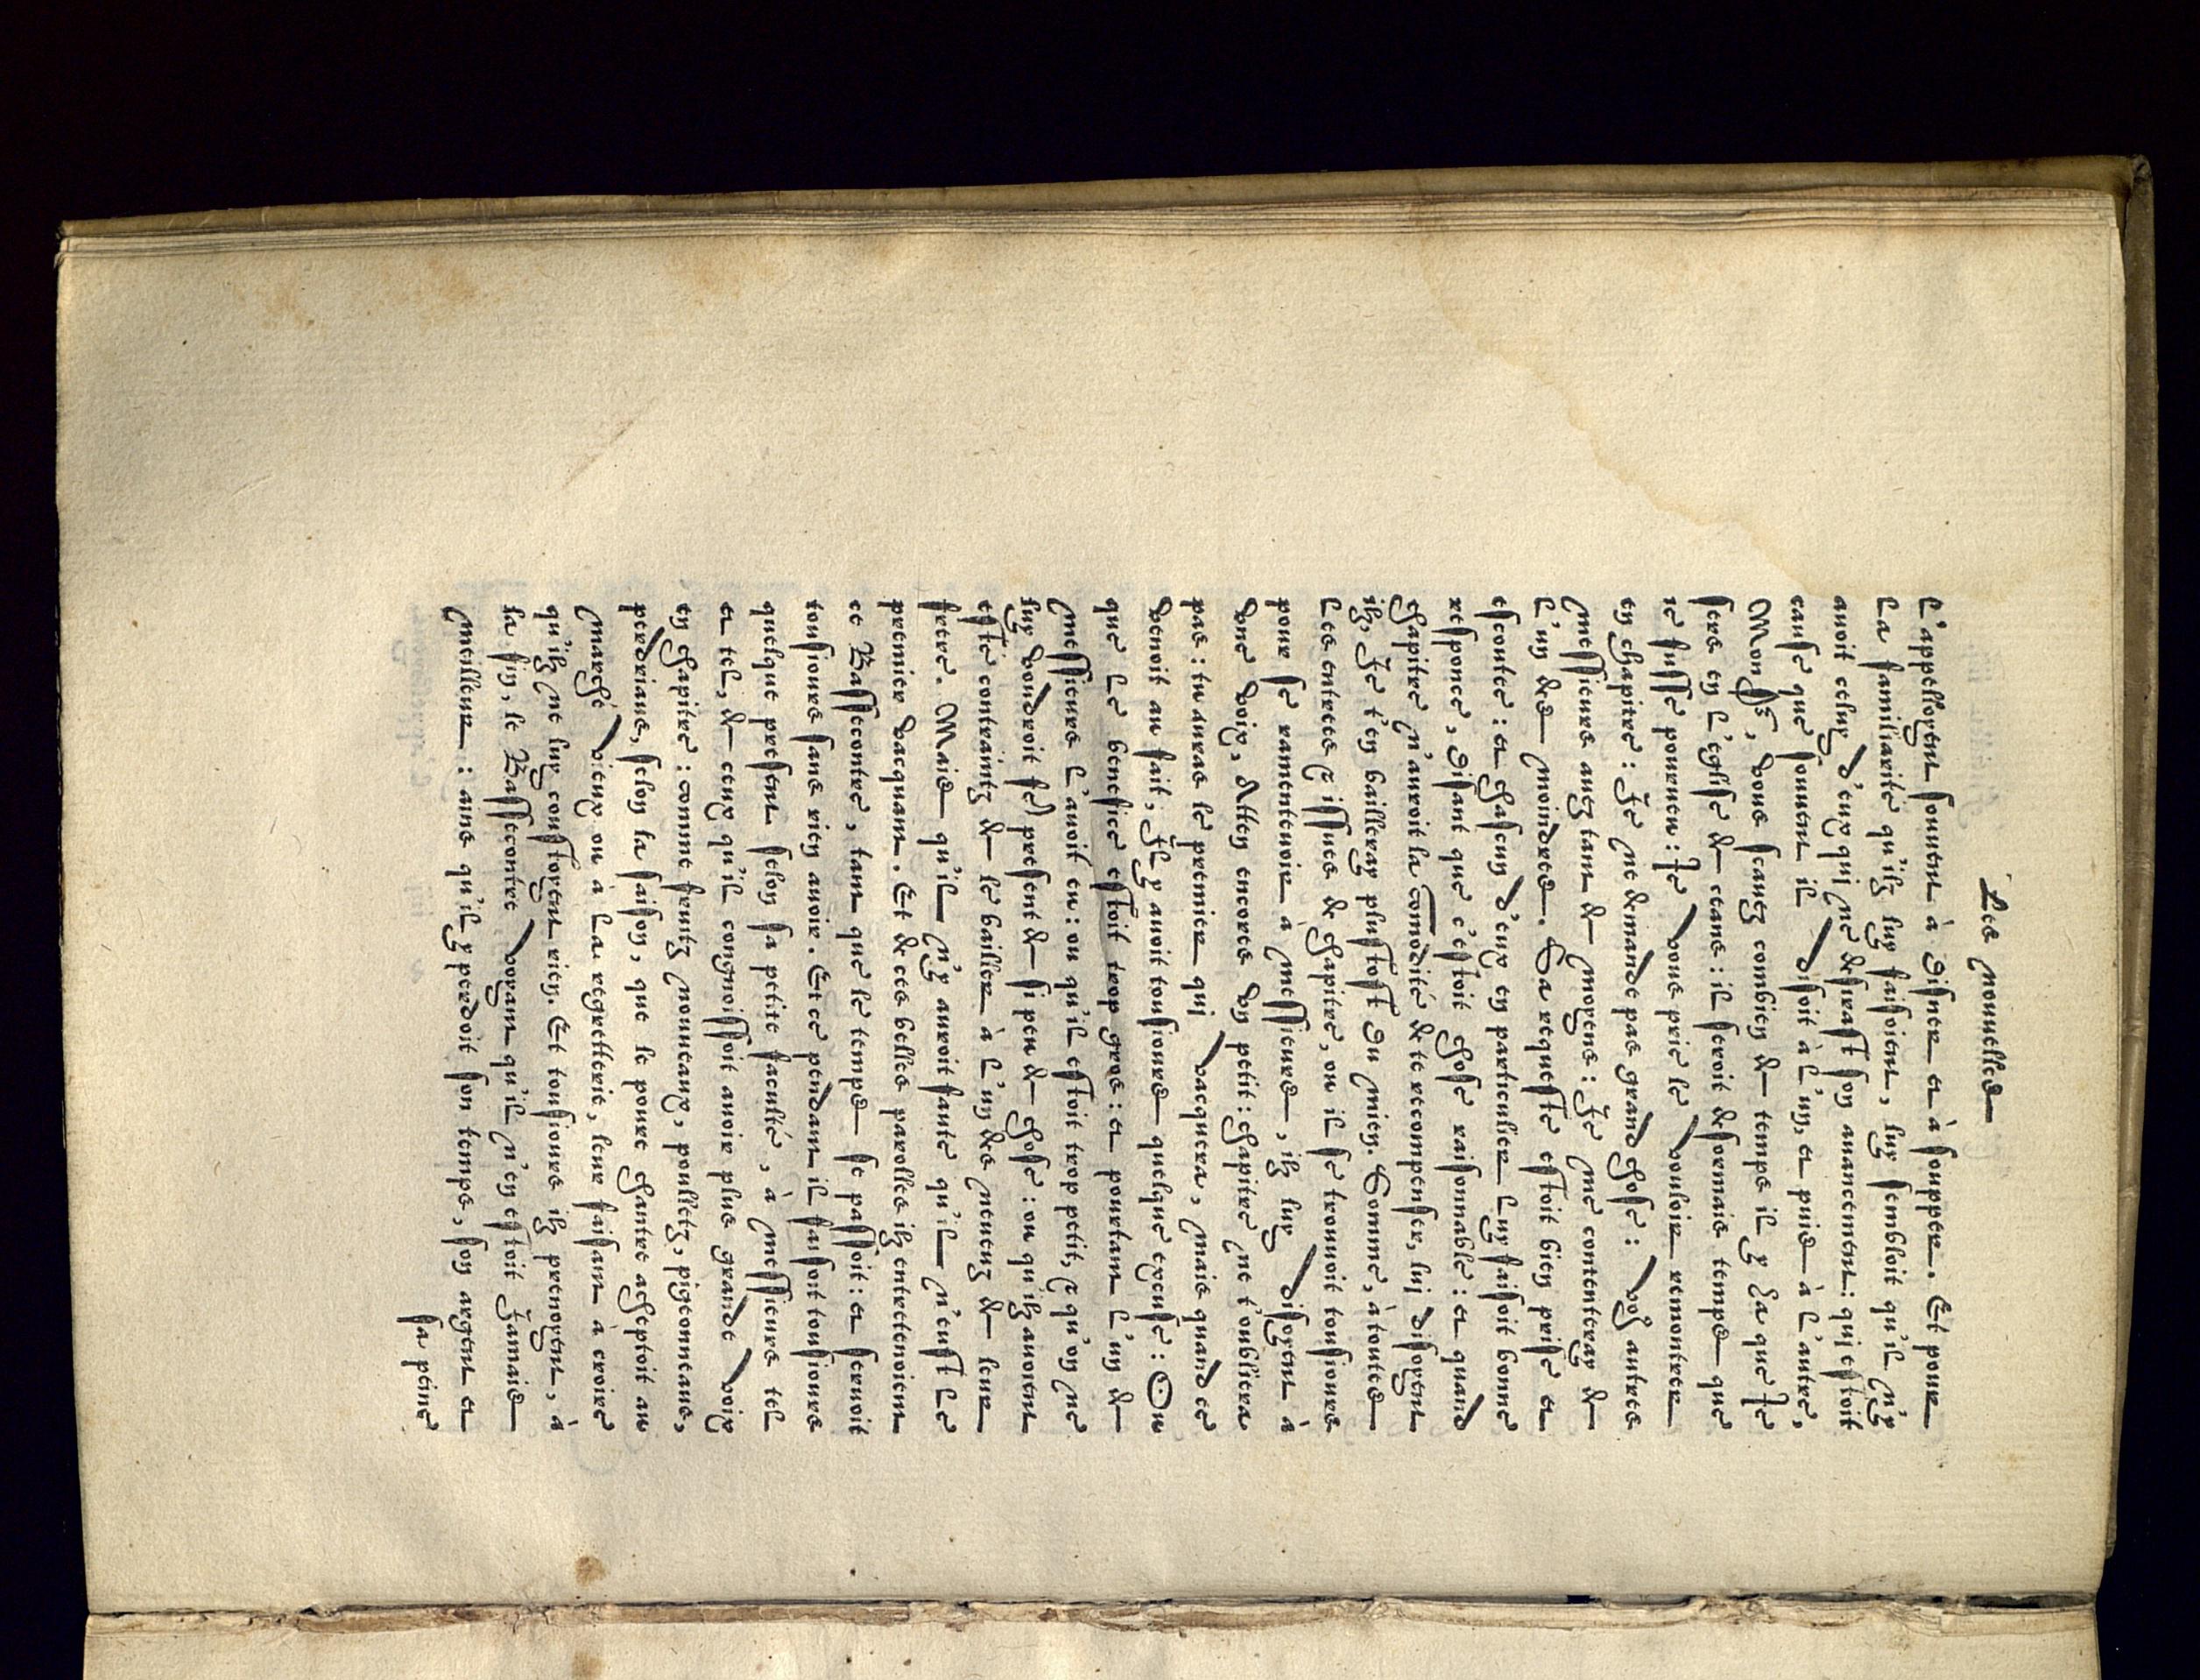 Les nouuelles
l'appelloyent souuent à disner et à soupper. Et pour
la familiarité qu'ilz luy faisoient, luy sembloit qu'il n'y
auoit celuy d'eux qui ne desirast son auancement: qui estoit
cause que souuent il disoit à l'un, et puis à l'autre,
Monsr, vous scauez combien de temps il y ha que Je
sers en l'eglise de ceans: il seroit desormais temps que
ie fusse pourueu: Je vous prie le vouloir remonstrer
en chapitre: Je ne demande pas grand chose: vo9 autres
messieurs auez tant de moyens: Je me contenteray de
l'un des moindres. Sa requeste estoit bien prise et
escoutee: et chascun d'eux en particulier luy faisoit bonne
responce, disant que c'estoit chose raisonnable: et quand
chapitre n'auroit la com̄odité de te recompenser, luj disoyent
ilz, Je t'en bailleray plustost du mien. Somme, à toutes
les entrees & issues de chapitre, ou il se trouuoit tousiours
pour se ramenteuoir à messieurs, ilz luy disoyent à
vne voix, Atten encores vn petit: chapitre ne t'oubliera
pas: tu auras le premier qui vacquera, mais quand ce
venoit au fait, Jl y auoit tousiours quelque excuse: Ou
que le benefice estoit trop gros: et pourtant l'un de
messieurs l'auoit eu: ou qu'il estoit trop petit, & qu'on ne
luy voudroit fe) present de si peu de chose: ou qu'ilz auoient
esté contraintz de le bailler à l'un des neueuz de leur
frere. Mais qu'il n'y auroit faute qu'il n'eust le
premier vacquant. Et de ces belles parolles ilz entretenoient
ce Bassecontre, tant que le temps se passoit: et seruoit
tousiours sans rien auoir. Et ce pendant il faisoit tousiours
quelque present selon sa petite faculté, à messieurs tel
et tel, de ceux qu'il congnoissoit auoir plus grande voix
en chapitre: comme fruitz nouueaux, pouletz, pigeonneaus,
perdriaus, selon la saison, que le poure chantre acheptoit au
marché vieux ou à la regretterie, leur faisant à croire
qu'ilz ne luy coustoyent rien. Et tousiours ilz prenoyent, à
la fin, le Bassecontre voyant qu'il n'en estoit Jamais
meilleur: ains qu'il y perdoit son temps, son argent et
sa peine